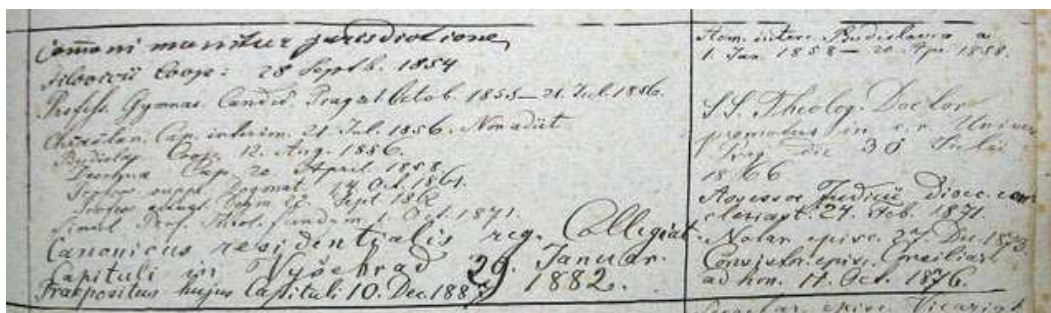 Comoni munitur jurisdictione
Coop: 28 Septb. 1854
Profess. Gymnas. Candid. Pragae 1 Octob. 1855 — 21. Jul. 1856.
Cap. interim. 21. Jul. 1856. Non adiit
Budislav Coop. 12. Aug. 1856.
Cap. 20 April 1858.
suppl. Dogmat. 14 Oct. 1861.
Sept 1862
Simul Prof. Theol. fundam. 1. Oct. 1871.
Canonicus residentialis reg. Collegiat.
Capituli in Vyšehrad 29. Januar.
1882.
Praepositus hujus Capituli 10. Dec. 1887
Adm. interc. Budislavia a
1. Jan. 1858 — 20. Apr. 1858.
SS. Theolog. Doctor
promotus in c. r. Univer
Prag. die 30 Julii
1866
Assessor Judicii Dioec. con
clesiast. 27. Feb. 1871.
Notar. episc. 27. Dec. 1873.
episc. Consiliar.
ad hon. 11. Oct. 1876.
episc. Vicariat